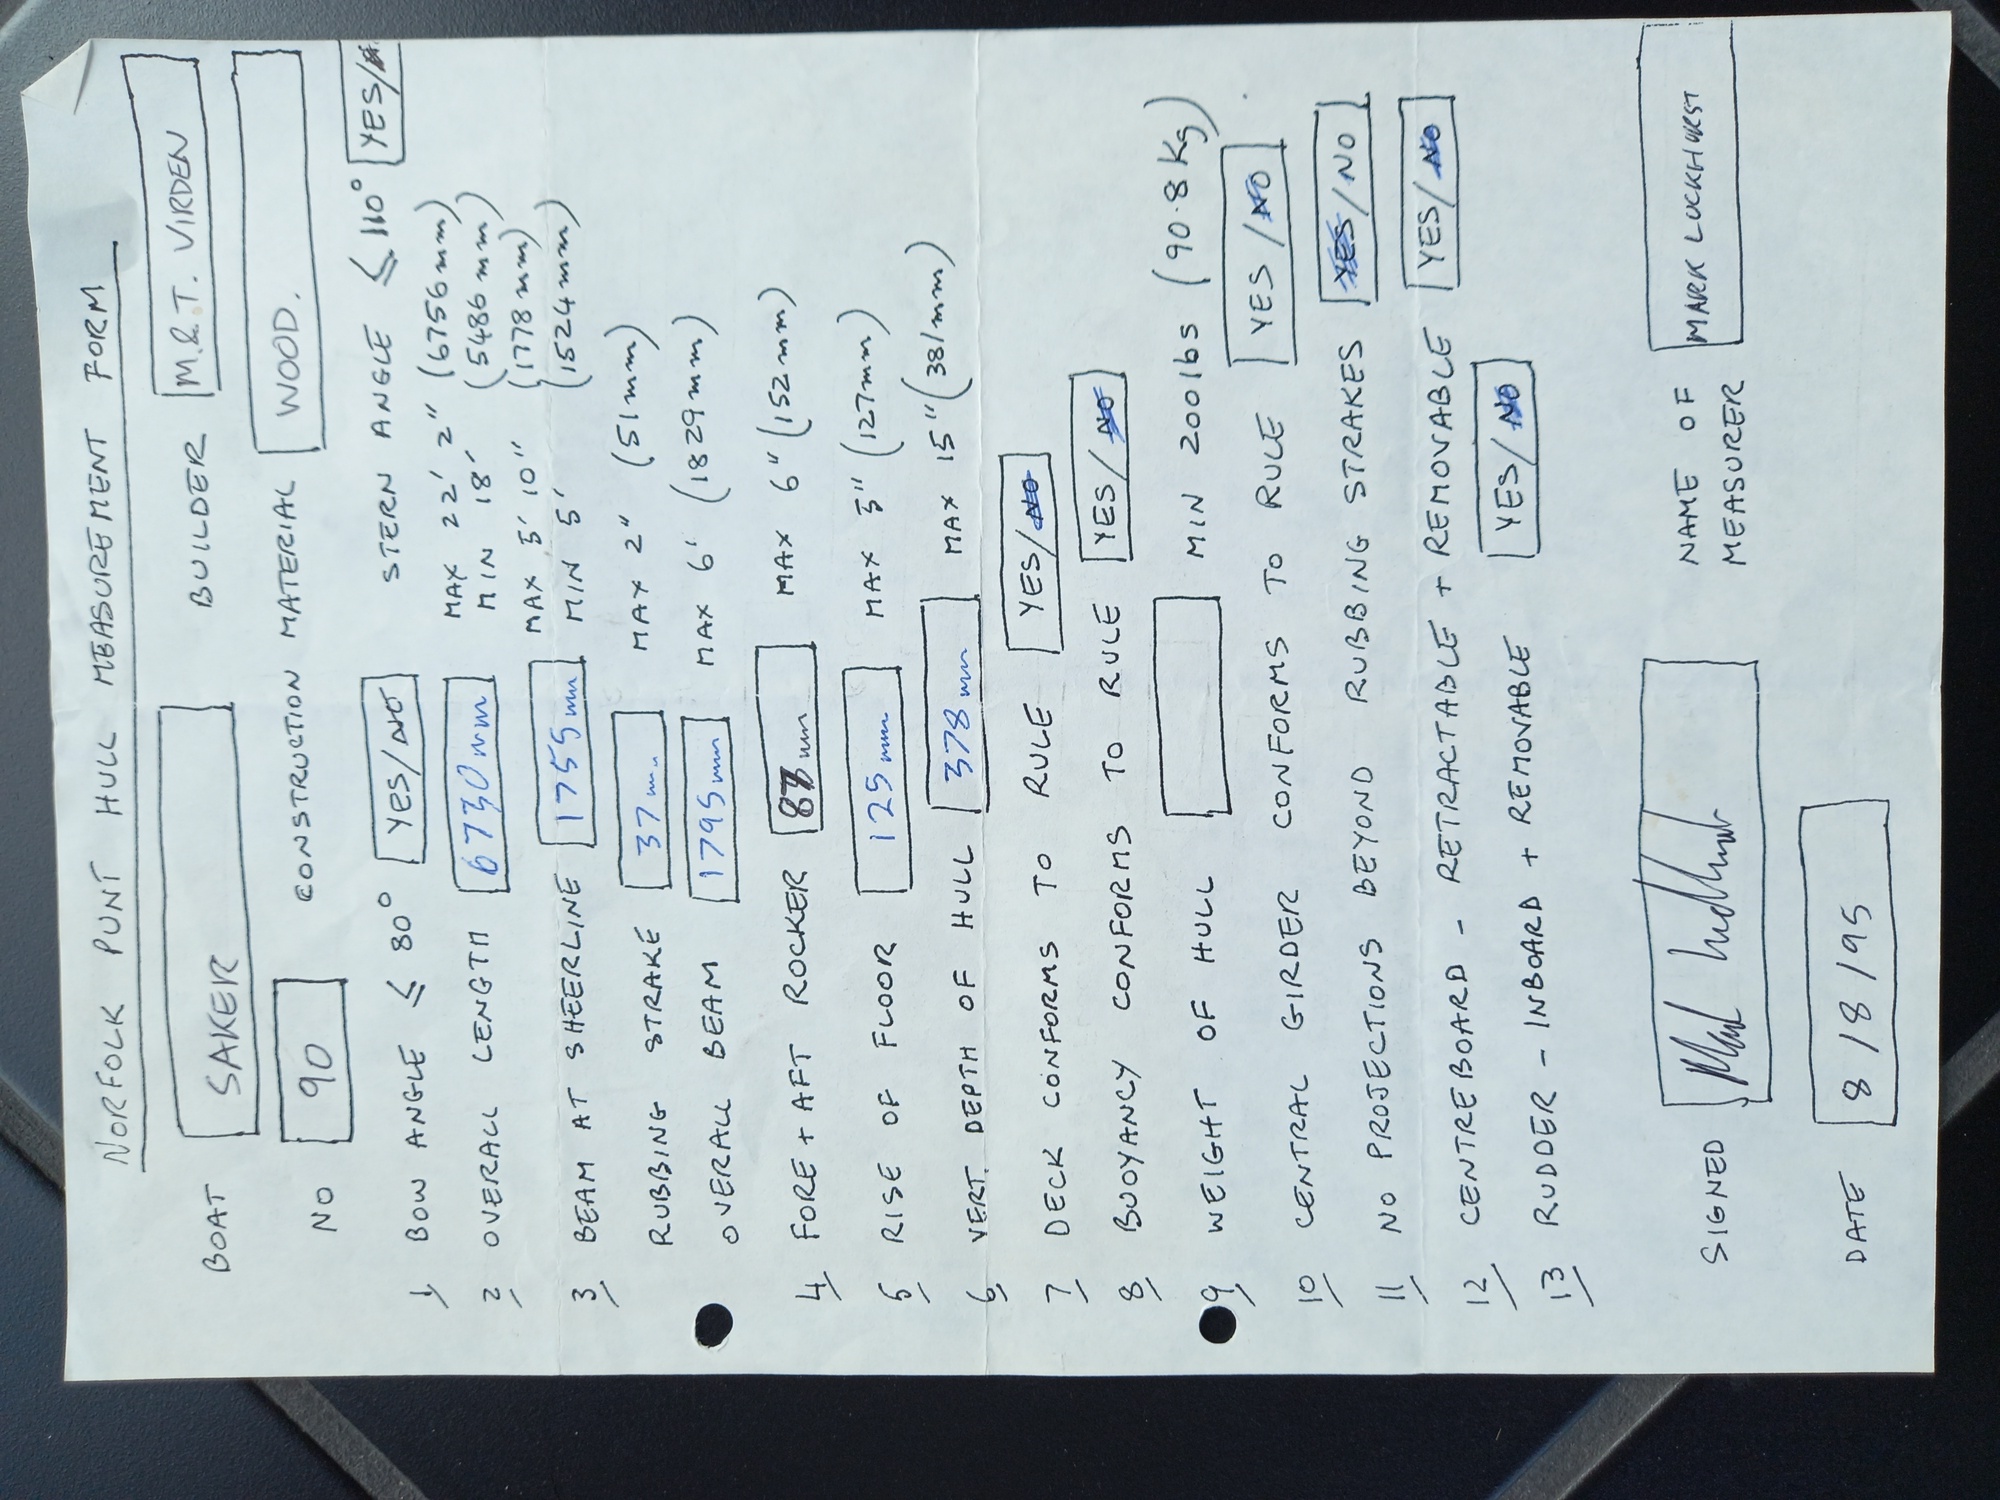 NORFOLK PUNT HULL MEASUREMENT FORM
BOAT SAKER BUILDER M.& T. VIRDEN
NO 90 CONSTRUCTION MATERIAL WOOD.
1 BOW ANGLE ≤ 80° YES/NO STERN ANGLE ≤ 110° YES/
2 OVERALL LENGTH 6730mm MAX 22' 2" (6756mm)
MIN 18' (5486mm)
3 BEAM AT SHEERLINE 1755mm MAX 5' 10" (1778mm)
MIN 5' (1524mm)
RUBBING STRAKE 37mm MAX 2" (51mm)
OVERALL BEAM 1795mm MAX 6' (1829mm)
4 FORE + AFT ROCKER mm MAX 6" (152mm)
5 RISE OF FLOOR 125mm MAX 5" (127mm)
6 VERT. DEPTH OF HULL 378mm MAX 15" (381mm)
7 DECK CONFORMS TO RULE YES/NO
8 BUOYANCY CONFORMS TO RULE YES/NO
9 WEIGHT OF HULL MIN 200lbs (90.8Kg)
10 CENTRAL GIRDER CONFORMS TO RULE YES/NO
11 NO PROJECTIONS BEYOND RUBBING STRAKES YES/NO
12 CENTREBOARD - RETRACTABLE + REMOVABLE YES/NO
13 RUDDER - INBOARD + REMOVABLE YES/NO
SIGNED Mark Luckhurst NAME OF MEASURER MARK LUCKHURST
DATE 8/8/95